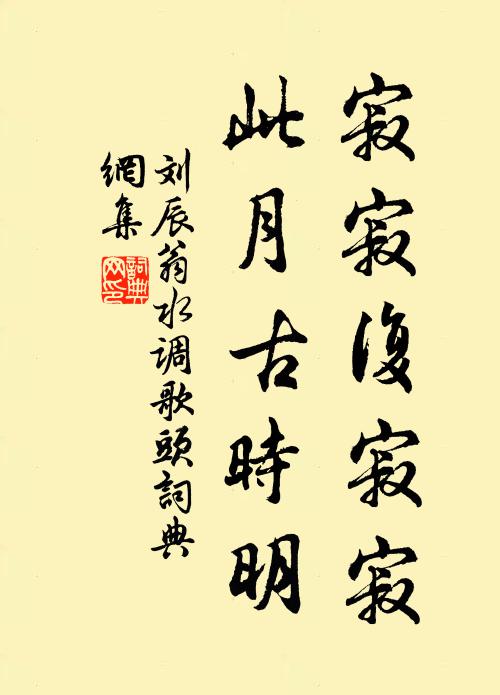 寂寂復寂寂
此月古時明
刘辰翁水调歌頭詞典
網集
詞典網印